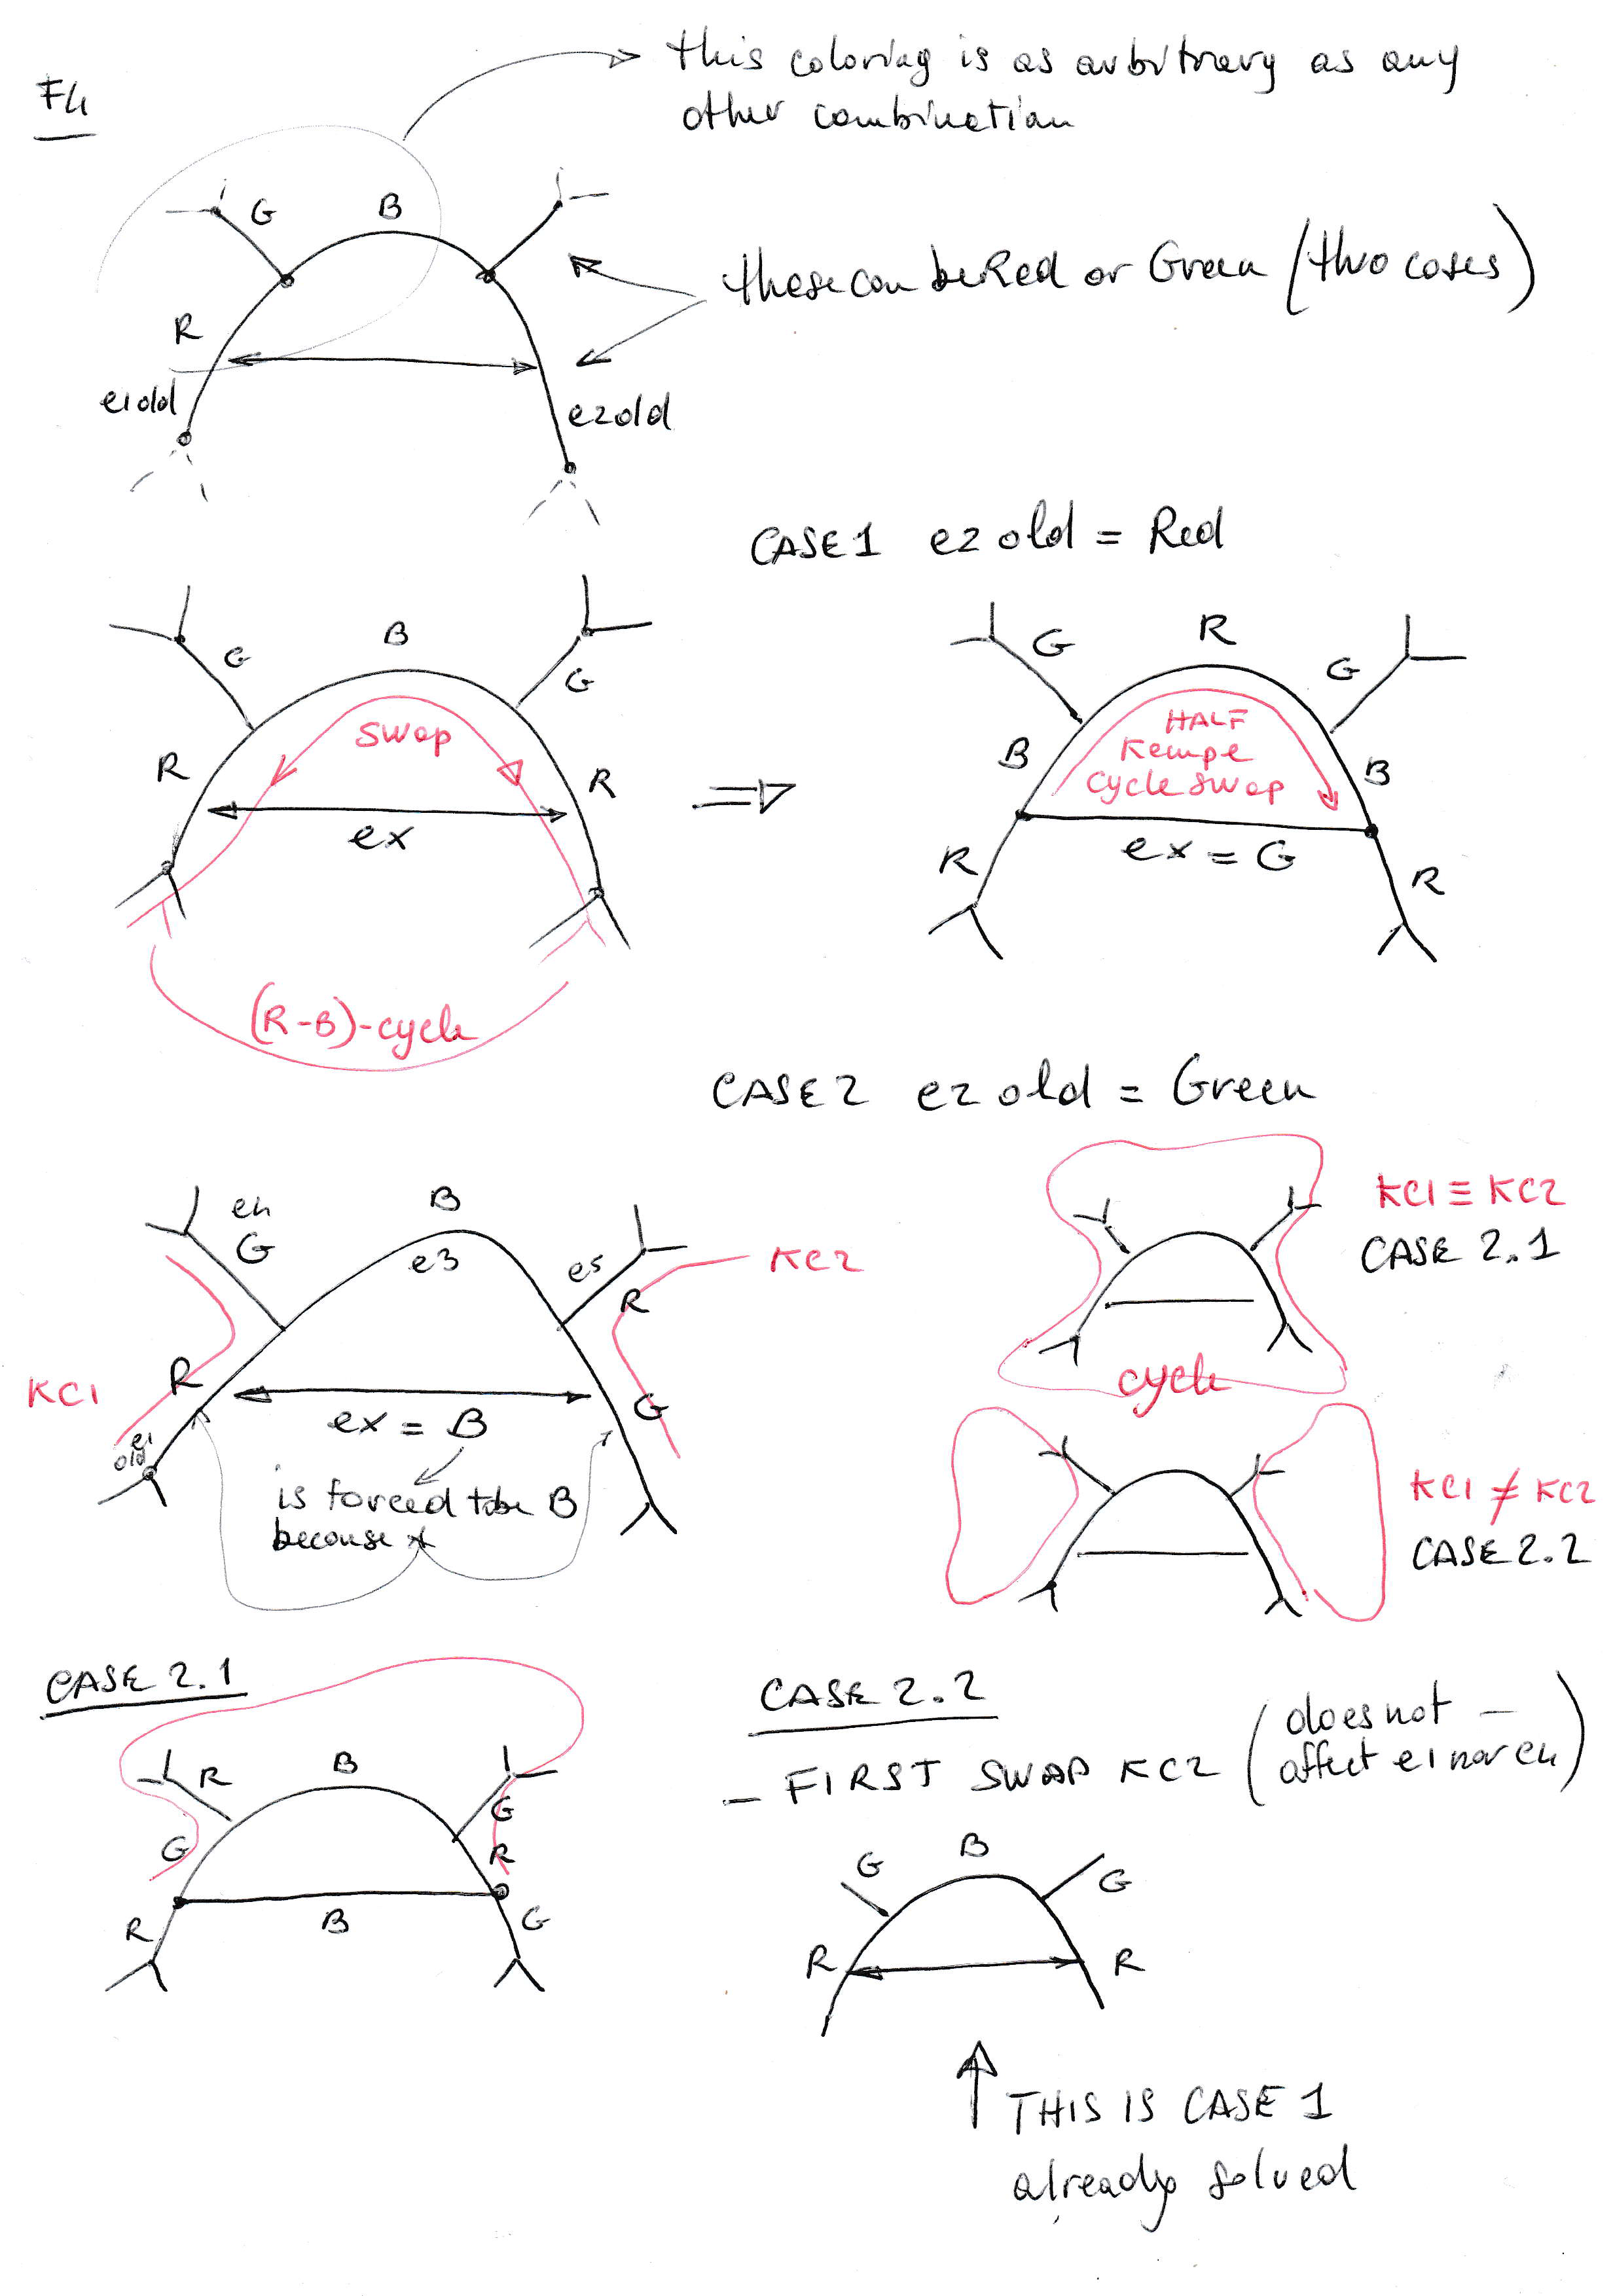 F4
this coloring is as arbitrary as any
other combination
G
B
R
e1old
e2old
these can be Red or Green (two cases)
CASE1 e2old = Red
B
G
G
swap
R
R
ex
(R-B)-cycle
R
G
G
HALF
Kempe
cycle swap
B
B
R
ex = G
R
CASE2 e2old = Green
e4
G
B
e3
e5
KC2
R
KC1
R
G
ex = B
e1
old
is forced to be B
because *
KC1 ≡ KC2
CASE 2.1
cycle
KC1 ≠ KC2
CASE 2.2
CASE 2.1
R
B
G
G
R
R
B
G
CASE 2.2
- FIRST SWAP KC2 (does not -
affect e1 nor e4)
G
B
G
R
R
THIS IS CASE 1
already solved